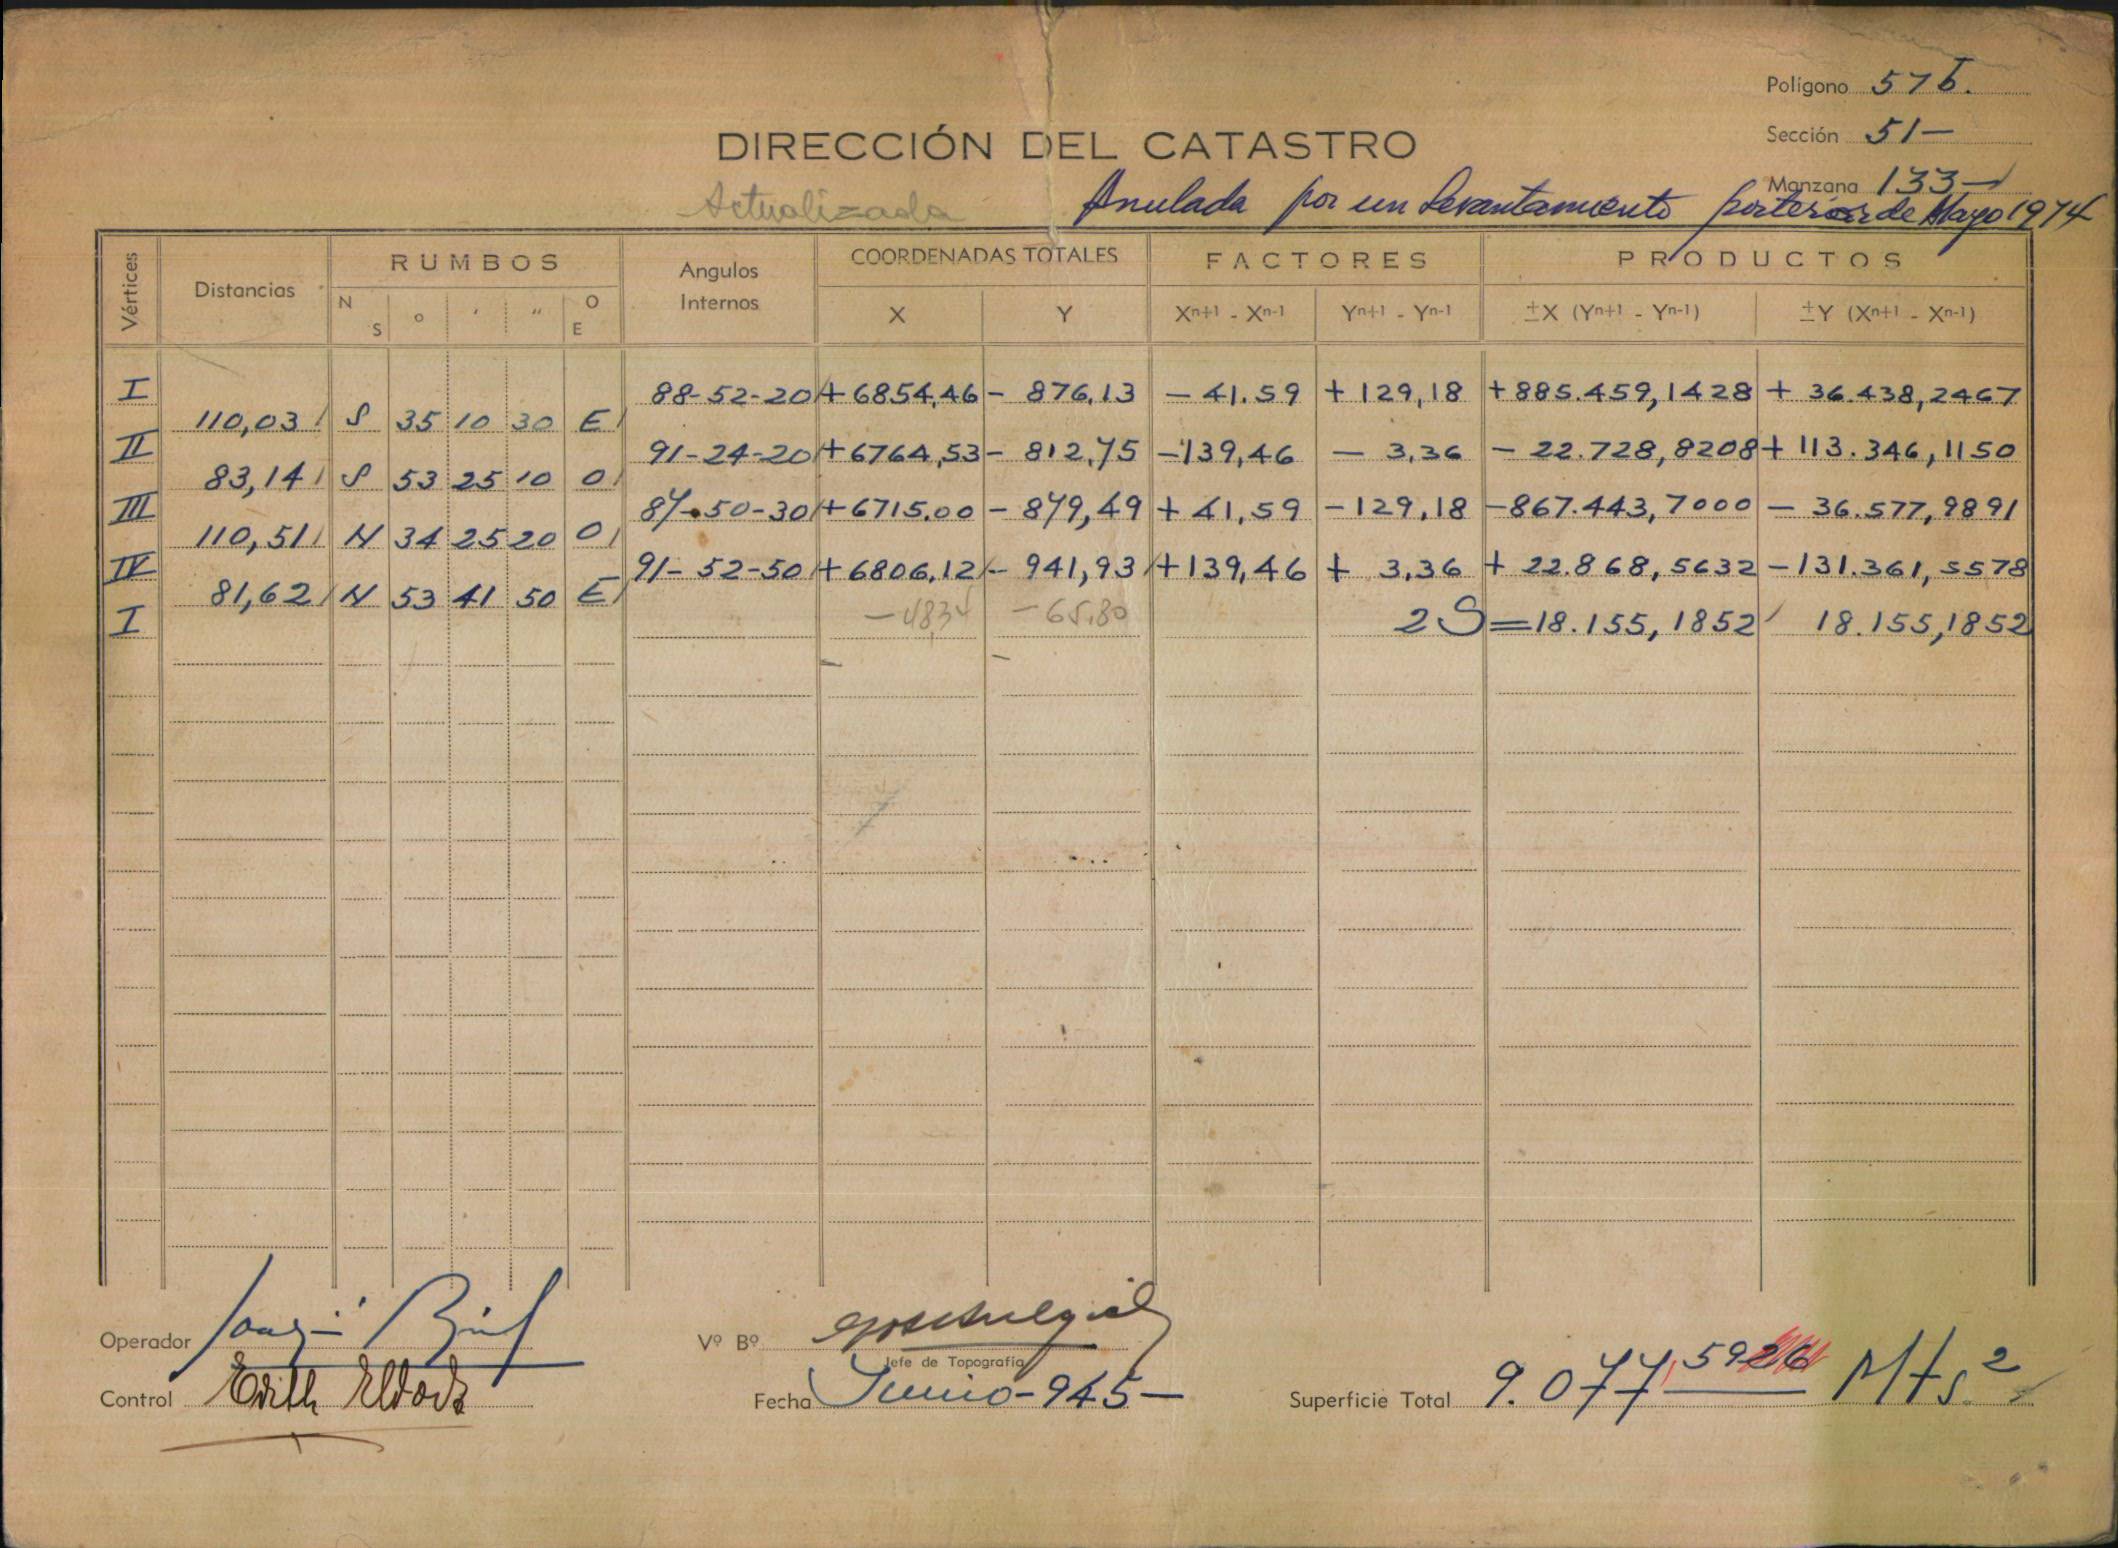 Polígono 57b.
DIRECCIÓN DEL CATASTRO
Sección 51-
Manzana 133-
Actualizada
Anulada por un Levantamiento posterior de Mayo 1974
Vértices Distancias RUMBOS Angulos Internos COORDENADAS TOTALES FACTORES PRODUCTOS
N S ° ' " O E X Y Xn+1 - Xn-1 Yn+1 - Yn-1 ±X (Yn+1 - Yn-1) ±Y (Xn+1 - Xn-1)
I 88-52-20 +6854,46 - 876,13 - 41.59 + 129,18 +885.459,1428 + 36.438,2467
110,03 S 35 10 30 E
II 91-24-20 +6764,53 - 812,75 -139,46 - 3,36 - 22.728,8208 + 113.346,1150
83,14 S 53 25 10 O
III 87-50-30 +6715.00 - 879,49 + 41,59 -129,18 -867.443,7000 - 36.577,9891
110,51 N 34 25 20 O
IV 91-52-50 +6806,12 - 941,93 +139,46 + 3,36 + 22.868,5632 -131.361,5578
81,62 N 53 41 50 E
I -48,34 -65,80 2S=18.155,1852 18.155,1852
Operador
Vº Bº
Jefe de Topografía
Control Edith
Fecha Junio-945-
Superficie Total 9.077,5926 Mts2